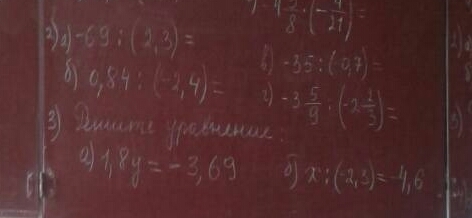 : (- 4/21) =
2) а) -69 : (2,3) =
б) 0,84 : (-2,4) =
в) -35 : (-0,7) =
г) -3 5/9 : (-2 2/3) =
3) Решите уравнение:
а) 1,8y = -3,69
б) x : (-2,3) = -4,6